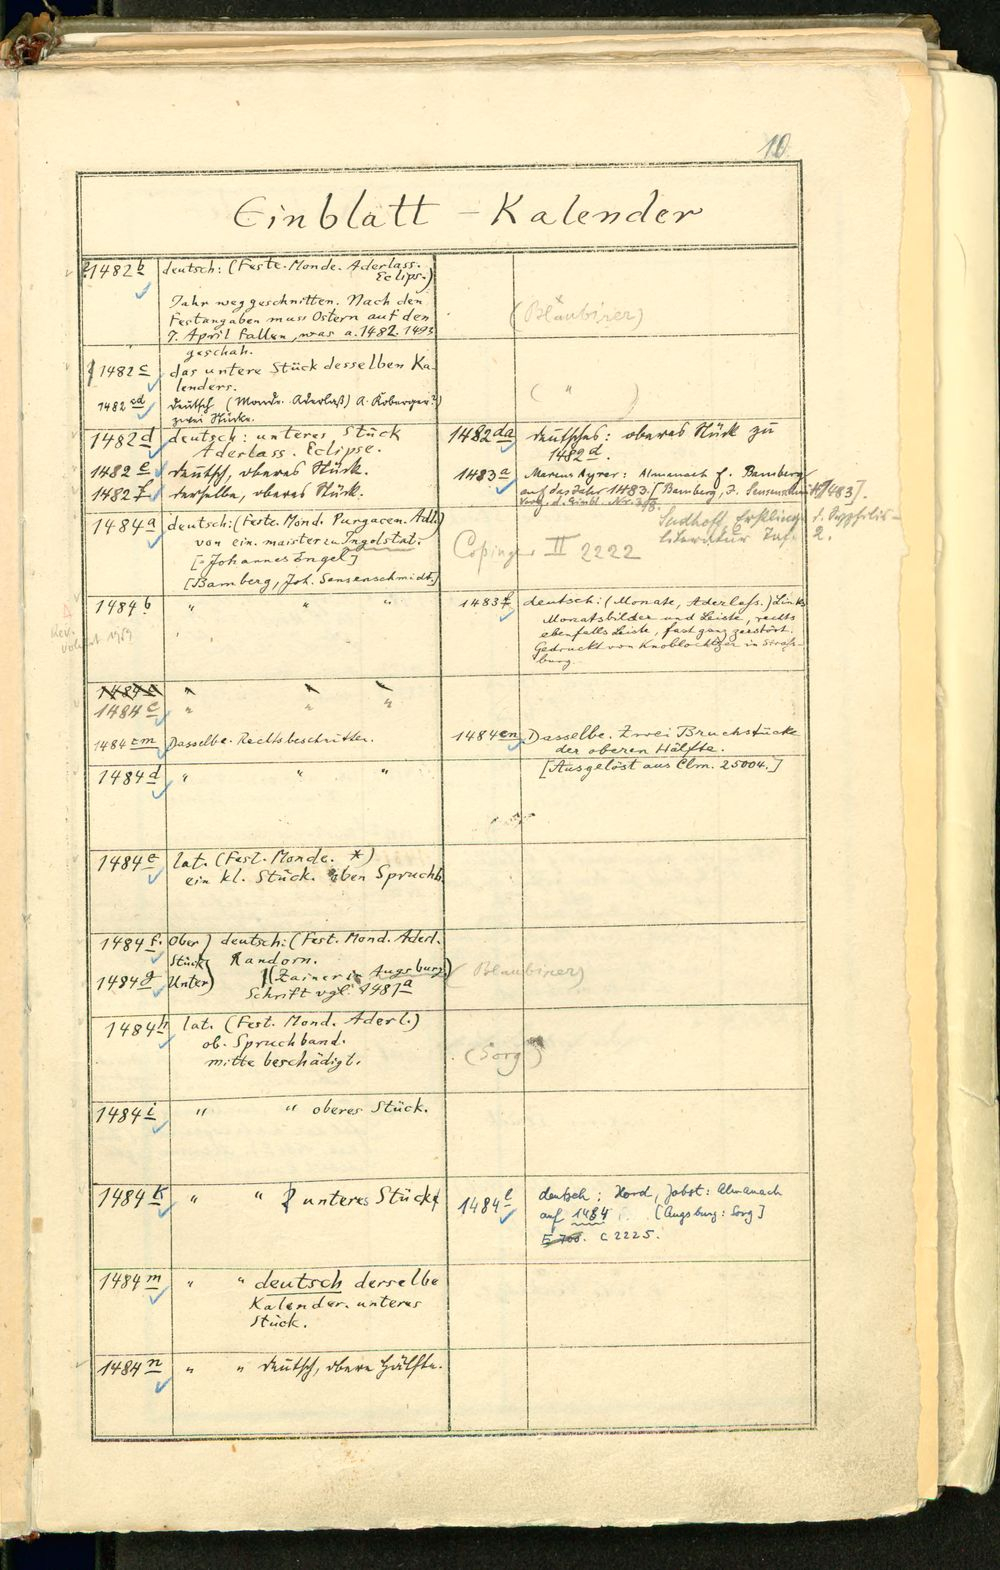 10
Einblatt - Kalender
1482 b deutsch: (Feste. Monde. Aderlass.
Eclips.)
Jahr weggeschnitten. Nach den
Festangaben muss Ostern auf den
7. April fallen, was a. 1482. 1493
geschah.
(Blaubirer)
1482 c das untere Stück desselben Ka-
lenders.
( " )
1482 cd deutsch (Monde. Aderlaß) A. Koberger?)
zwei Stücke.
1482 d deutsch: unteres Stück
Aderlass. Eclipse.
1482 e deutsch, oberes Stück.
1482 f derselbe, oberes Stück.
1482 da deutsches: oberes Stück zu
1482 d.
1483 a Marcus Ayrer: Almanach f. Bamberg
auf das Jahr 1483. [Bamberg, J. Sensenschmidt 1483].
Verz. d. Einbl. Nr. 318.
Sudhoff, Erstlinge d. Syphilis-
literatur Taf. 2.
1484 a deutsch: (Feste. Mond. Purgacen. Adl.)
von ein. maister zu Ingolstat.
[= Johannes Engel]
[Bamberg, Joh. Sensenschmidt]
Copinger II 2222
1484 b " " "
1483 f deutsch: (Monate, Aderlass.) Links
Monatsbilder und Leiste, rechts
ebenfalls Leiste, fast ganz zerstört.
Gedruckt von Knoblochtzer in Strass-
burg.
1484 c " " "
1484 c " " "
1484 cm Dasselbe. Rechts beschnitten.
1484 cn Dasselbe. Zwei Bruchstücke
der oberen Hälfte.
[Ausgelöst aus Clm. 25004.]
1484 d " " "
1484 e lat. (Fest. Monde. *)
ein kl. Stück. oben Spruchb.
1484 f. Ober) deutsch: (Fest. Mond. Aderl.
Stück Randorn.
1484 g Unter) (Zainer in Augsburg)
Schrift vgl. 1481 a
(Blaubirer)
1484 h lat. (Fest. Mond. Aderl.)
ob. Spruchband.
mitte beschädigt.
(Sorg)
1484 i " " oberes Stück.
1484 k " " unteres Stück
1484 l deutsch: Hord, Jobst: Almanach
auf 1484 [Augsburg: Sorg]
C 2225.
1484 m " " deutsch derselbe
Kalender. unteres
Stück.
1484 n " " deutsch, obere Hälfte.